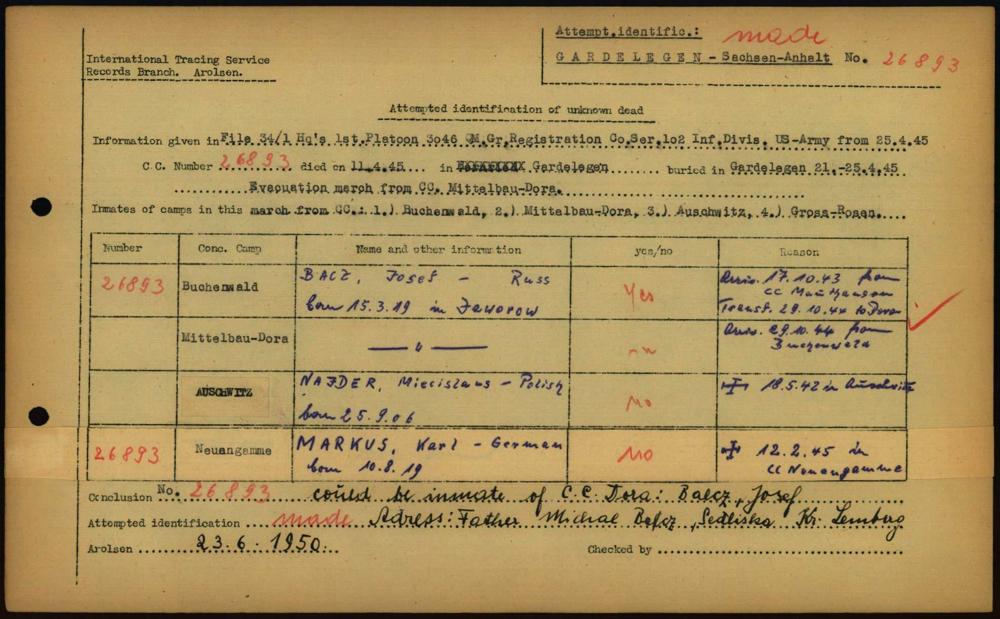 Attempt.identific.: made
International Tracing Service
GARDELEGEN - Sachsen-Anhalt No. 26893
Records Branch. Arolsen.
Attempted identification of unknown dead
Information given in File 34/1 Hq's 1st.Platoon 3046 QM.Gr.Registration Co.Ser.102 Inf.Divis. US-Army from 25.4.45
C.C. Number 26893 died on 11.4.45 in Gardelegen buried in Gardelegen 21.-25.4.45
Evacuation march from CC. Mittelbau-Dora.
Inmates of camps in this march from CC.: 1.) Buchenwald, 2.) Mittelbau-Dora, 3.) Auschwitz, 4.) Gross-Rosen.
Number Conc. Camp Name and other information yes/no Reason
26893 Buchenwald BACZ, Josef - Russ born 15.3.19 in Jaworow Yes Arriv. 17.10.43 from CC Mauthausen Transf. 29.10.44 to Dora
Mittelbau-Dora — " — " Arriv. 29.10.44 from Buchenwald
AUSCHWITZ NAJDER, Miecislaus - Polish born 25.9.06 No 18.5.42 in Auschwitz
26893 Neuengamme MARKUS, Karl - German born 10.8.19 No 12.2.45 in CC Neuengamme
Conclusion No. 26893 could be inmate of C.C. Dora: Josef
Attempted identification made Adress: Father Michal Kr. Lemberg
Arolsen 23.6.1950. Checked by